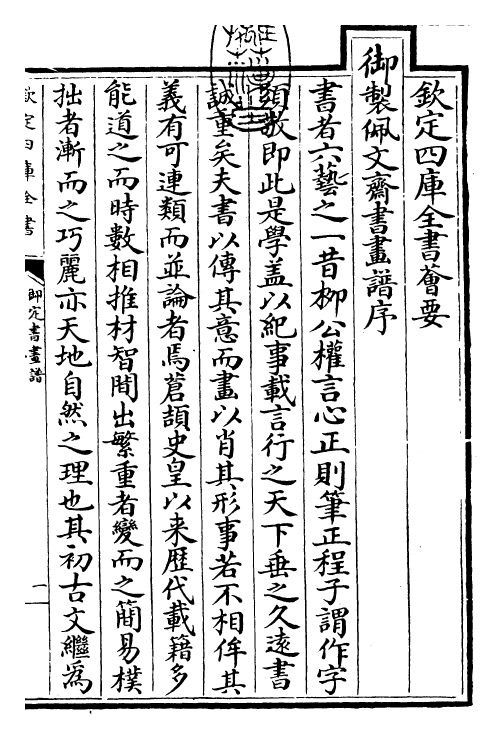 欽定四庫全書薈要
御製佩文齋書畫譜序
書者六藝之一昔柳公權言心正則筆正程子謂作字
須敬即此是學盖以紀事載言行之天下垂之久遠書
誠重矣夫書以傳其意而畫以肖其形事若不相侔其
義有可連類而並論者焉蒼頡史皇以来歴代載籍多
能道之而時數相推材智間出繁重者變而之簡易樸
拙者漸而之巧麗亦天地自然之理也其初古文繼為
欽定四庫全書
御定書畫譜
一